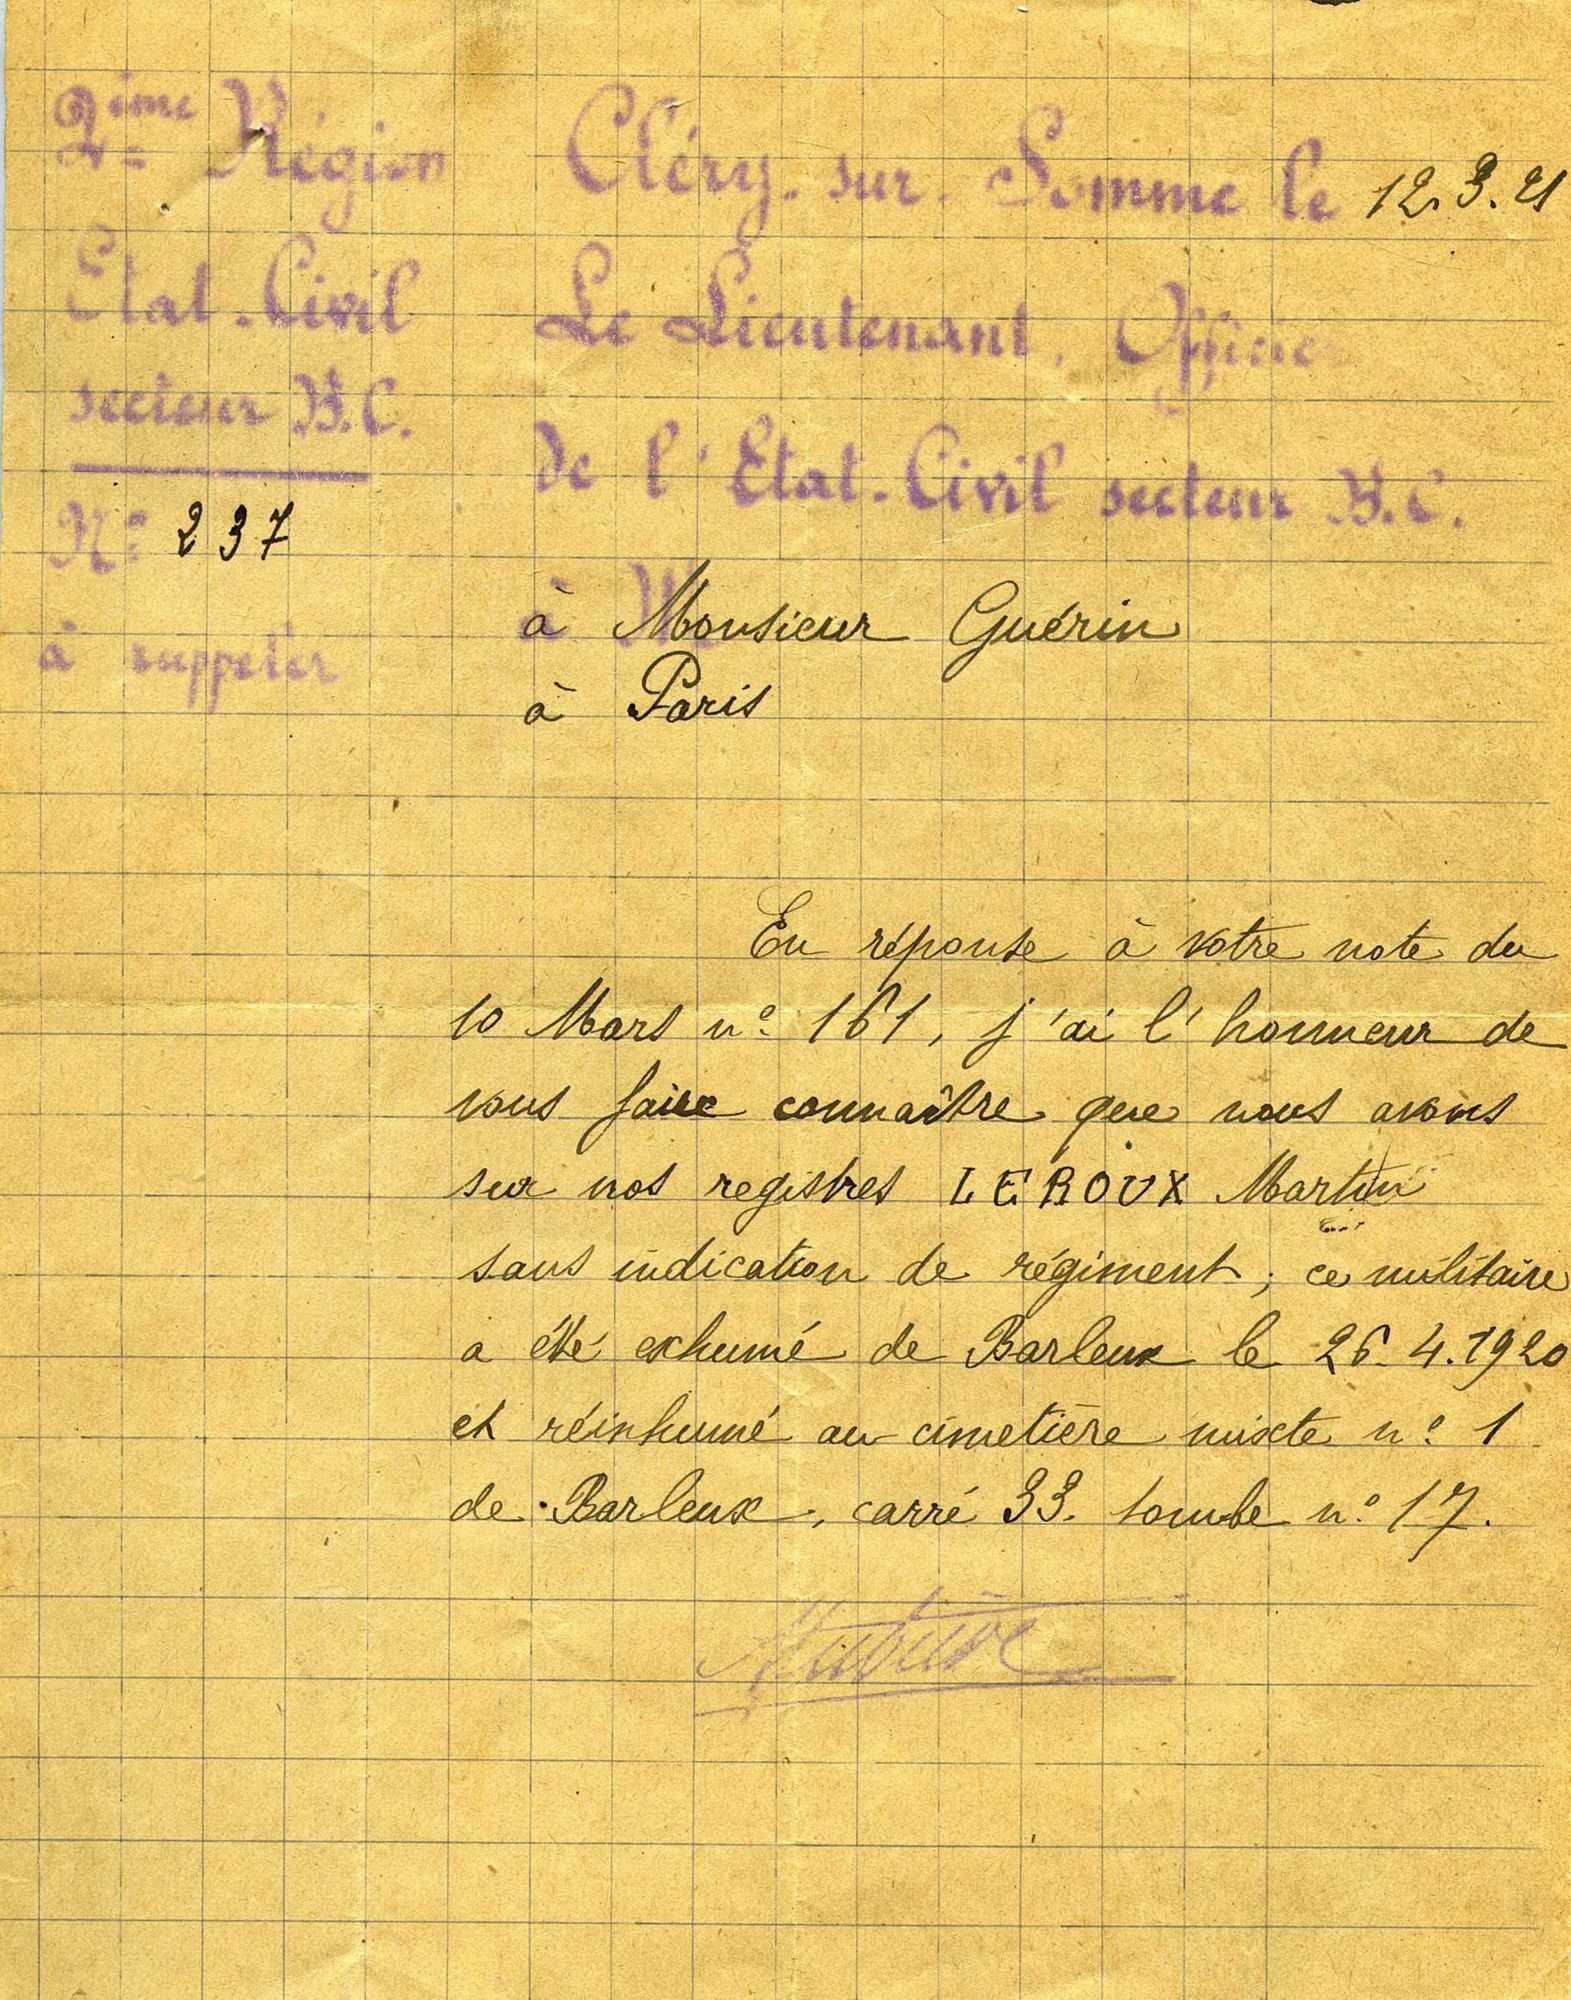 2ème Région
Etat-Civil
secteur B.C.
N° 237
à rappeler
Cléry-sur-Somme le 12.3.21
Le Lieutenant, Officier
de l'Etat-Civil secteur B.C.
à Monsieur Guérin
à Paris
En réponse à votre note du
10 Mars n° 161, j'ai l'honneur de
vous faire connaître que nous avons
sur nos registres LEROUX Martin
sans indication de régiment; ce militaire
a été exhumé de Barleux le 26.4.1920
et réinhumé au cimetière mixte n° 1
de Barleux, carré 33. tombe n° 17.